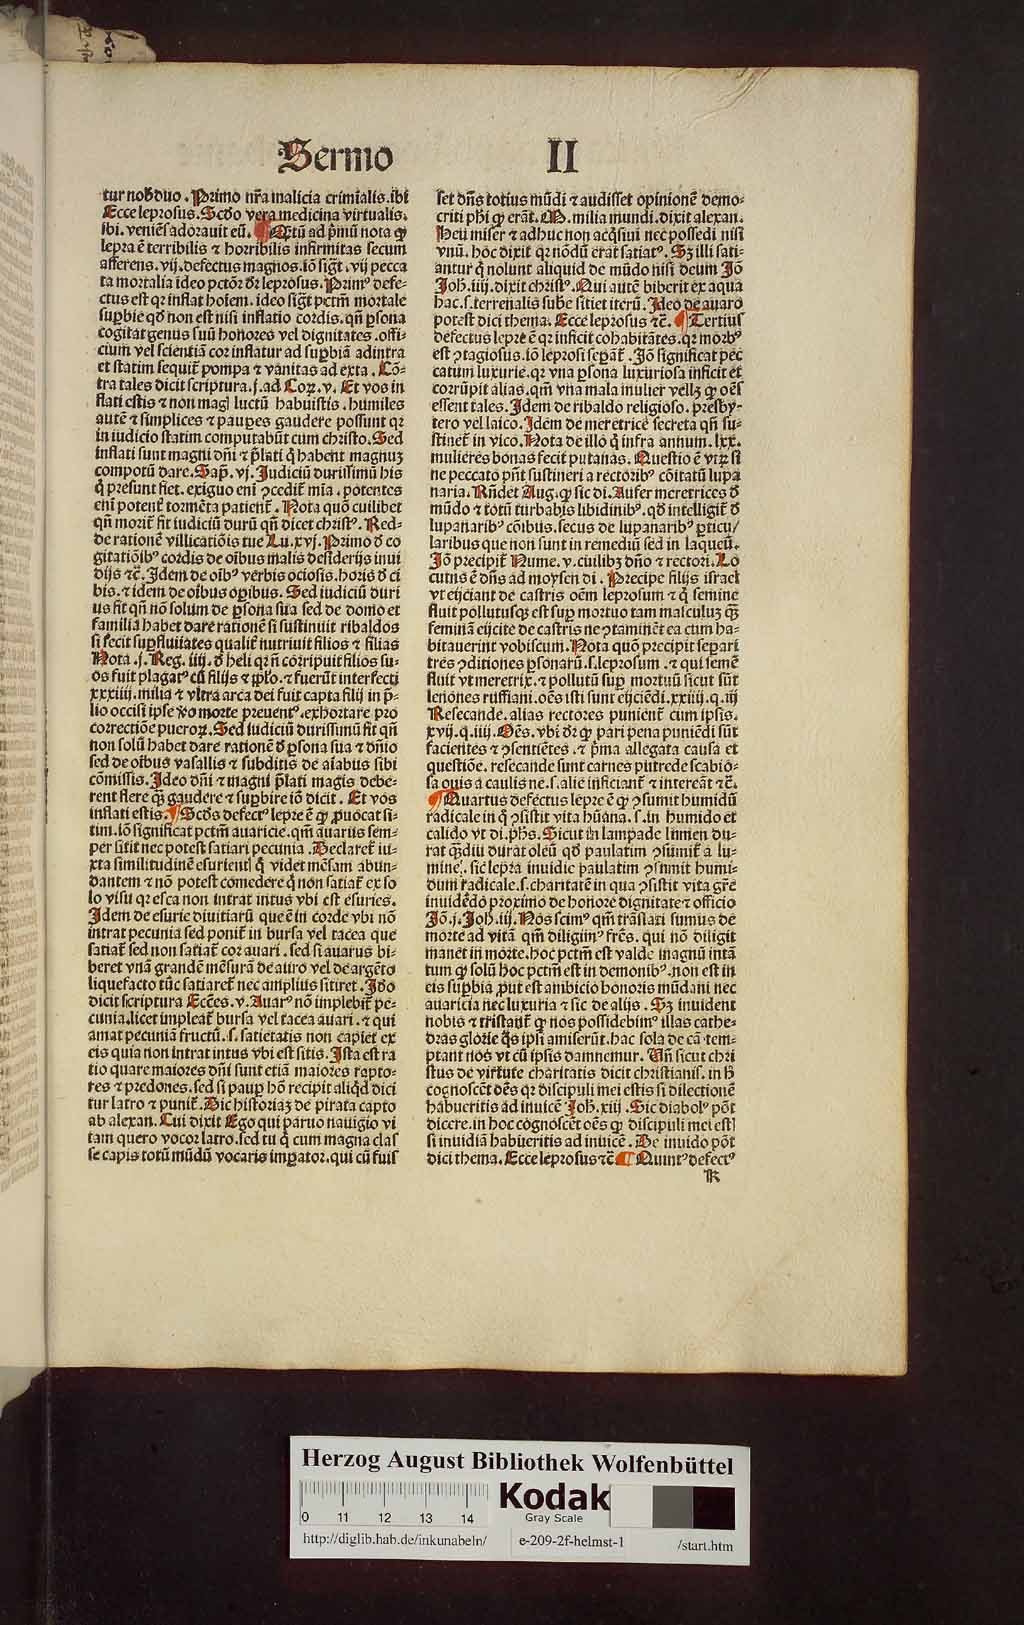 Sermo II
tur nob̄ duo. Primo nr̄a malicia crimīalis. ibi
Ecce leprosus. Scd̄o vera medicina virtualis.
ibi. veniēs adorauit eū. ¶ Q̄tū ad p̄mū nota ꝙ
lepra ē terribilis ⁊ horribilis infirmitas secum
afferens .vij. defectus magnos. iō sigt̄ .vij pecca
ta mortalia ideo pctōr dr̄ leprosus. Primꝰ defe-
ctus est qꝛ inflat hoīem. ideo sigt̄ pctm̄ mortale
suꝑbie qd̄ non est nisi inflatio cordis. qn̄ ꝑsona
cogitat genus suū honores vel dignitates. offi-
cium vel scientiā cor inflatur ad suꝑbiā ad intra
et statim sequit̄ pompa ⁊ vanitas ad exta. Cō-
tra tales dicit scriptura .j. ad Coꝝ. v. Et vos in
flati estis ⁊ non magꝭ luctū habuistis. humiles
autē ⁊ simplices ⁊ pauꝑes gaudere possunt qꝛ
in iudicio statim computabūt cum christo. Sed
inflati sunt magni dn̄i ⁊ p̄lati q̇ habent magnuꝫ
computū dare. Sap. vj. Judiciū durissimū his
q̇ presunt fiet. exiguo eni ꝯcedit̄ mīa. potentes
enī potent̄ tormēta patient̄. Nota quō cuilibet
qn̄ morit̄ fit iudiciū durū qn̄ dicet christꝰ. Red-
de rationē villicatiōis tue Lu. xvj. Primo d̄ co
gitatiōibꝰ cordis de oībus malis desiderijs inui
dijs ⁊c̄. Idem de oībꝰ verbis ociosis. horis d̄ ci
bis. ⁊ idem de oībus oꝑibus. Sed iudiciū duri
us fit qn̄ nō solum de ꝑsona sua sed de domo et
familia habet dare rationē si sustinuit ribaldos
si fecit suꝑfluitates qualit̄ nutriuit filios ⁊ filias
Nota .j. Reg. iiij. d̄ heli qꝛ n̄ corripuit filios su-
os fuit plagatꝰ cū filijs ⁊ pp̄lo. ⁊ fuerūt interfecti
xxxiiij. milia ⁊ vltra arca dei fuit capta filij in p̄-
lio occisi ipse ꝟo morte preuentꝰ. exhortare pro
correctiōe pueroꝝ. Sed iudiciū durissimū fit qn̄
non solū habet dare rationē d̄ ꝑsona sua ⁊ dn̄io
sed de oībus vasallis ⁊ subditis de aīabus sibi
cōmissis. Ideo dn̄i ⁊ magni p̄lati magis debe-
rent flere qꝫ̄ gaudere ⁊ suꝑbire iō dicit. Et vos
inflati estis. ¶ Scd̄s defectꝰ lepre ē ꝙ ꝓuocat si-
tim. iō significat pctm̄ auaricie. qm̄ auarus sem-
per sitit nec potest satiari pecunia. Declaret̄ iu-
xta similitudinē esurientꝭ q̇ videt mēsam abun-
dantem ⁊ nō potest comedere q̇ non satiat̄ ex so
lo visu qꝛ esca non intrat intus vbi est esuries.
Idem de esurie diuitiarū que ē in corde vbi nō
intrat pecunia sed ponit̄ in bursa vel tacea que
satiat̄ sed non satiat̄ coꝛ auari. sed si auarus bi-
beret vnā grandē mēsurā de auro vel de argēto
liquefacto tūc satiaret̄ nec amplius sitiret. Idō
dicit scriptura Ecc̄es. v. Auarꝰ nō implebit̄ pe-
cunia. licet impleat̄ bursa vel tacea auari. ⁊ qui
amat pecuniā fructū .s. satietatis non capiet ex
eis quia non intrat intus vbi est sitis. Ista est ra
tio quare maiores dn̄i sunt etiā maiores rapto-
res ⁊ predones. sed si pauꝑ hō recipit aliqd̄ dici
tur latro ⁊ punit̄. Dic historiaꝫ de pirata capto
ab alexan. Cui dixit Ego qui paruo nauigio vi
tam quero vocoꝛ latro. sed tu q̇ cum magna clas
se capis totū mūdū vocaris imꝑator. qui cū fuis
set dn̄s totius mūdi ⁊ audisset opinionē demo-
criti phi ꝙ erāt .M. milia mundi. dixit alexan.
Heu miser ⁊ adhuc non acq̇siui nec possedi nisi
vnū. hoc dixit qꝛ nōdū erat satiatꝰ. Sꝫ illi sati-
antur q̇ nolunt aliquid de mūdo nisi deum Jō
Joh. iiij. dixit christꝰ. Qui autē biberit ex aqua
hac .s. terrenalis sube sitiet iterū. Ideo de auaro
potest dici thema. Ecce leprosus ⁊c̄. ¶ Tertius
defectus lepre ē qꝛ inficit cohabitātes. qꝛ morbꝰ
est ꝯtagiosus. iō leprosi seꝑat̄. Jō significat pec
catum luxurie. qꝛ vna ꝑsona luxuriosa inficit et
corrūpit alias. qm̄ vna mala mulier velleꝫ ꝙ oēs
essent tales. Idem de ribaldo religioso. presby-
tero vel laico. Idem de meretrice secreta qn̄ su-
stinet̄ in vico. Nota de illo q̇ infra annum .lxx.
mulieres bonas fecit putanas. Questio ē vtꝝ si
ne peccato pn̄t sustineri a rectoribꝰ cōitatū lupa
naria. Rn̄det Aug. ꝙ sic di. Aufer meretrices d̄
mūdo ⁊ totū turbabis libidinibꝰ. qd̄ intelligit̄ d̄
lupanaribꝰ cōibus. secus de lupanaribꝰ ꝑticu/
laribus que non sunt in remediū sed in laqueū.
Jō precipit̄ Nume. v. cuilibꝫ dn̄o ⁊ rectori. Lo
cutus ē dn̄s ad moysen di. Precipe filijs israel
vt eijciant de castris oēm leprosum ⁊ q̇ semine
fluit pollutusqꝫ est suꝑ mortuo tam masculuꝫ qꝫ̄
feminā eijcite de castris ne ꝯtaminēt ea cum ha-
bitauerint vobiscum. Nota quō precipit seꝑari
tres ꝯditiones ꝑsonarū .s. leprosum. ⁊ qui semē
fluit vt meretrix. ⁊ pollutū suꝑ mortuū sicut sūt
lenones ruffiani. oēs isti sunt eijciēdi .xxiiij. q. iij
Resecande. alias rectores punient̄ cum ipsis.
xvij. q. iiij. Oēs. vbi dr̄ ꝙ pari pena puniēdi sūt
facientes ⁊ ꝯsentiētes. ⁊ p̄ma allegata causa et
questiōe. resecande sunt carnes putrede scabio-
sa ouis a caulis ne .s. alie inficiant̄ ⁊ intereāt ⁊c̄.
¶ Quartus defectus lepre ē ꝙ ꝯsumit humidū
radicale in q̇ ꝯsistit vita hūana .s. in humido et
calido vt di. phs. Sicut in lampade lumen du-
rat qꝫ̄diu durat oleū qd̄ paulatim ꝯsumit̄ a lu-
mine. sic lepra inuidie paulatim ꝯsumit humi-
dum radicale .s. charitatē in qua ꝯsistit vita gr̄e
inuidēdo proximo de honore dignitate ⁊ officio
Jō .j. Joh. iij. Nos scimꝰ qm̄ trāslati sumus de
morte ad vitā qm̄ diligimꝰ fr̄es. qui nō diligit
manet in morte. hoc pctm̄ est valde magnū intā
tum ꝙ solū hoc pctm̄ est in demonibꝰ. non est in
eis suꝑbia ꝓut est ambicio honoris mūdani nec
auaricia nec luxuria ⁊ sic de alijs. Sꝫ inuident
nobis ⁊ tristant̄ ꝙ nos possidebimꝰ illas cathe-
dras glorie q̄s ipsi amiserūt. hac sola de cā tem-
ptant nos vt cū ipsis damnemur. Vn̄ sicut chri
stus de virtute charitatis dicit christianis. in h̄
cognoscēt oēs qꝛ discipuli mei estis si dilectionē
habueritis ad inuicē Joh. xiij. Sic diabolꝰ pōt
dicere. in hoc cognoscēt oēs ꝙ discipuli mei estꝭ
si inuidiā habueritis ad inuicē. De inuido pōt
dici thema. Ecce leprosus ⁊c̄ ¶ Quintꝰ defectꝰ
K
Herzog August Bibliothek Wolfenbüttel
0 11 12 13 14
Kodak
Gray Scale
http://diglib.hab.de/inkunabeln/ e-209-2f-helmst-1 /start.htm